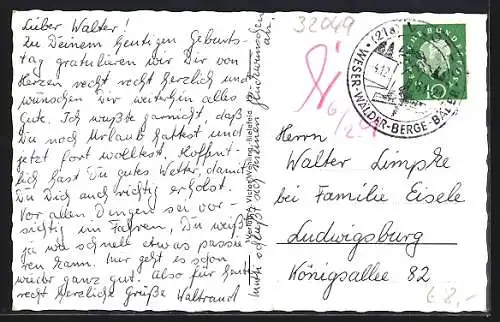 Lieber Walter!
Zu Deinem heutigen Geburts-
tag gratulieren wir Dir von
Herzen recht recht herzlich und
wünschen Dir weiterhin alles
Gute. Ich wußte garnicht, daß
Du noch Urlaub hattest und
jetzt fort wolltest. Hoffent-
lich hast Du gutes Wetter, damit
Du Dich auch richtig erholst.
Vor allen Dingen sei vor-
sichtig im Fahren, Du weißt
ja wie schnell etwas passie-
ren kann. Mir geht es schon
wieder ganz gut. Also für heute
recht herzliche Grüße Waltraud
Mutti schließt sich meinen Glückwünschen
an.
Verlag Victor Bielefeld
32049
(21a)
WESER-WÄLDER-BERGE-
10
Herrn
Walter Limpke
bei Familie Eisele
Ludwigsburg
Königsallee 82
€ 8,-